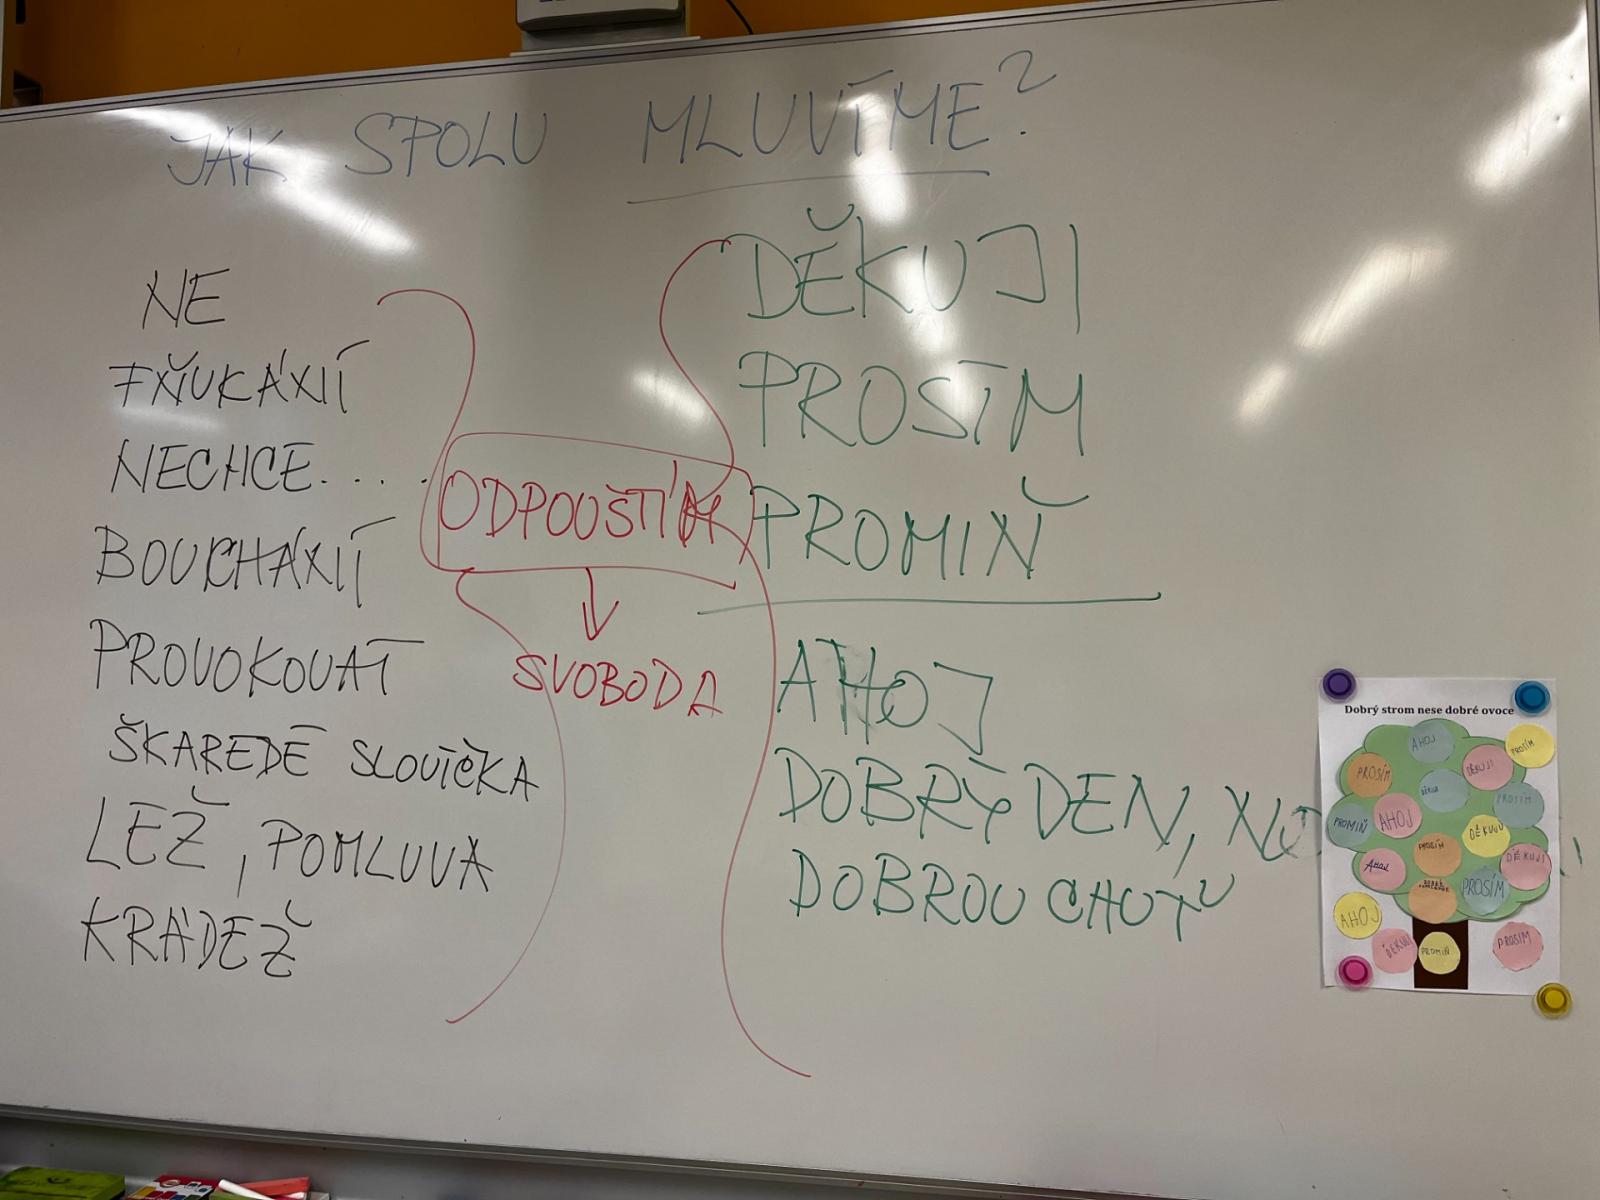 JAK SPOLU MLUVÍME?
NE
FŇUKÁNÍ
NECHCE....
BOUCHÁNÍ
PROVOKOVAT
ŠKAREDÉ SLOVÍČKA
LEŽ, POMLUVA
KRÁDEŽ
ODPOUŠTÍM
SVOBODA
DĚKUJI
PROSÍM
PROMIŇ
AHOJ
DOBRÝ DEN, NO
DOBROU CHUŤ
Dobrý strom nese dobré ovoce
AHOJ
PROSÍM
PROSÍM
DĚKUJI
DĚKUJI
PROSÍM
PROMIŇ
AHOJ
DĚKUJI
PROSÍM
DĚKUJI
AHOJ
PROSÍM
AHOJ
DĚKUJI
PROMIŇ
PROSÍM